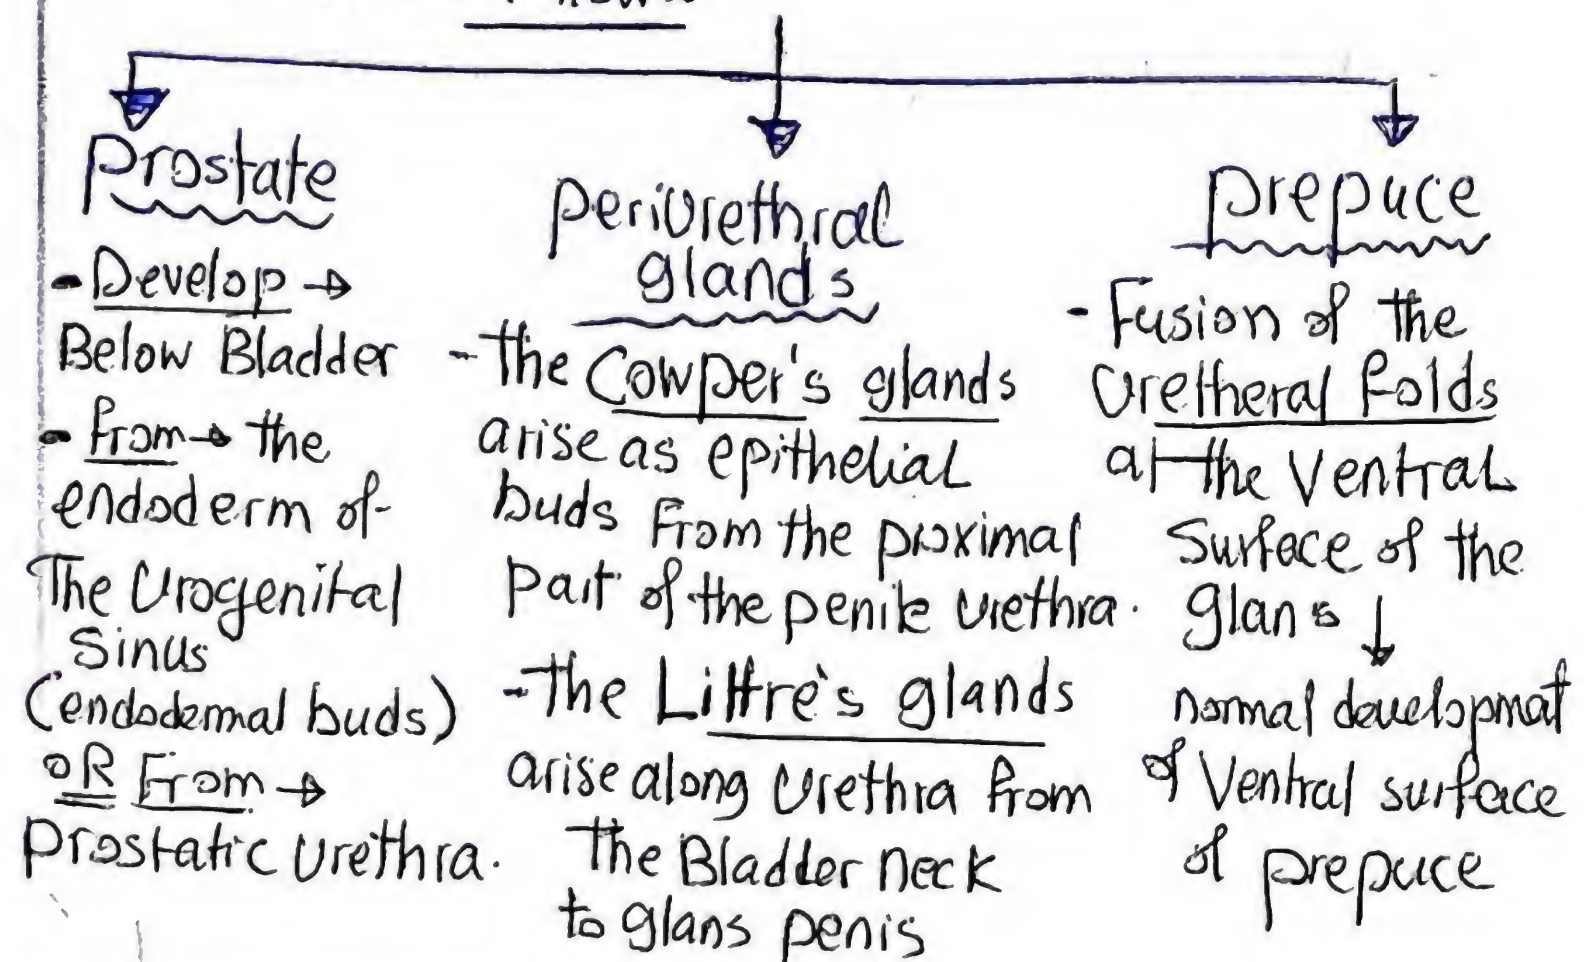 Prostate
- Develop →
Below Bladder
- from → the
endoderm of
The Urogenital
Sinus
(endodermal buds)
OR From →
Prostatic urethra.
periurethral
glands
- the Cowper's glands
arise as epithelial
buds From the proximal
part of the penile urethra.
- the Littre's glands
arise along urethra from
the Bladder neck
to glans penis
prepuce
- Fusion of the
Uretheral folds
at the Ventral
Surface of the
glans ↓
normal developmat
of Ventral surface
of prepuce